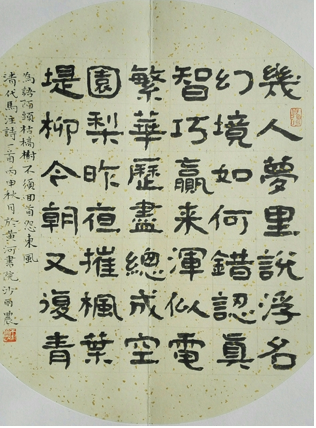 幾人夢里說浮名
幻境如何錯認真
智巧贏来渾似電
繁華歷盡總成空
園梨昨夜摧楓葉
堤柳今朝又復青
為語陌頭枯槁樹不須回首怨東風
清代馬注詩一首丙申秋月於黃河書院沙